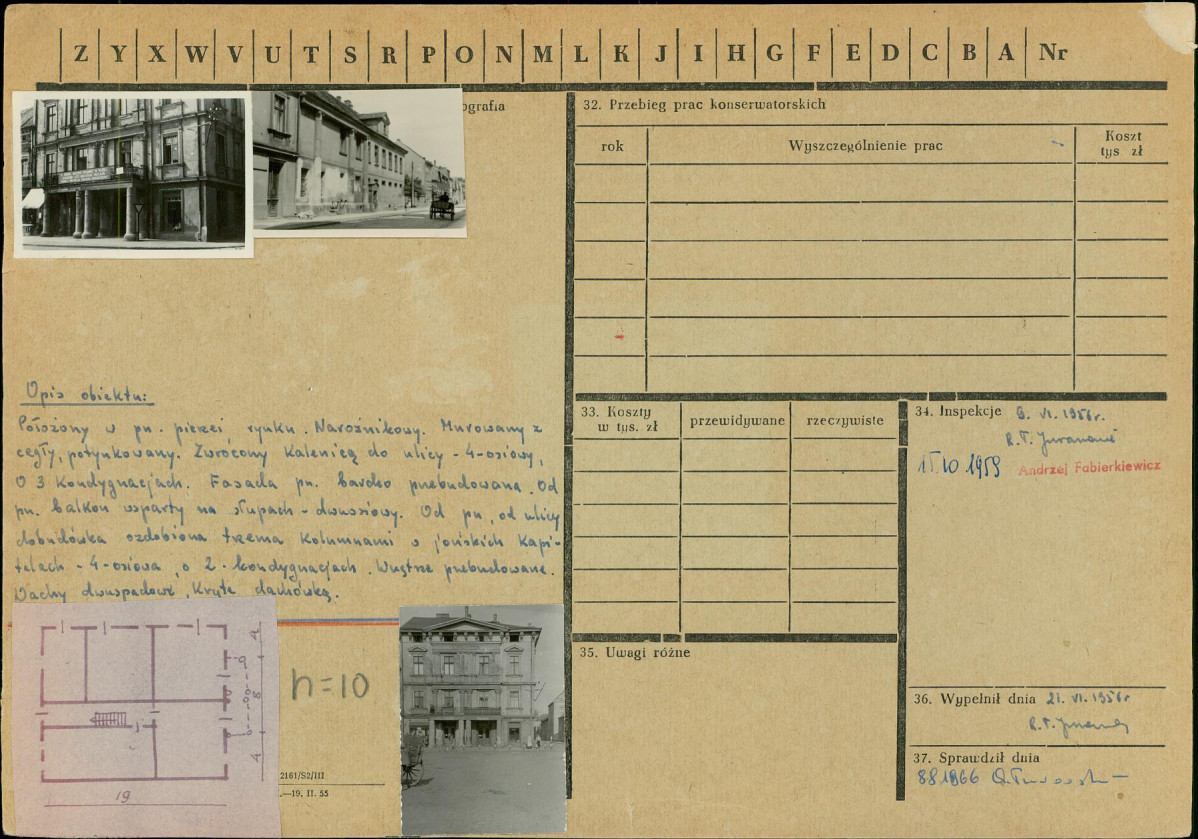 Z Y X W V U T S R P O N M L K J I H G F E D C B A Nr
ografia
32. Przebieg prac konserwatorskich
rok
Wyszczególnienie prac
Koszt
tys zł
Opis obiektu:
Położony w pn. pierzei rynku. Narożnikowy. Murowany z
cegły, potynkowany. Zwrócony kalenicą do ulicy - 4-osiowy,
o 3 kondygnacjach. Fasada pn. bardzo przebudowana. Od
pn. balkon wsparty na słupach - dwuosiowy. Od pn, od ulicy
dobudówka ozdobiona trzema kolumnami o jońskich kapi-
telach - 4-osiowa, o 2-kondygnacjach. Wnętrze przebudowane.
Dachy dwuspadowe, kryte dachówką.
33. Koszty
w tys. zł
przewidywane
rzeczywiste
34. Inspekcje 6. VI. 1956r.
15 10 1959 Andrzej Fabierkiewicz
35. Uwagi różne
36. Wypełnił dnia 21. VI. 1956r
37. Sprawdził dnia
8 8 1966
h=10
2161/S2/III
.—19. II. 55
4
8
4
19